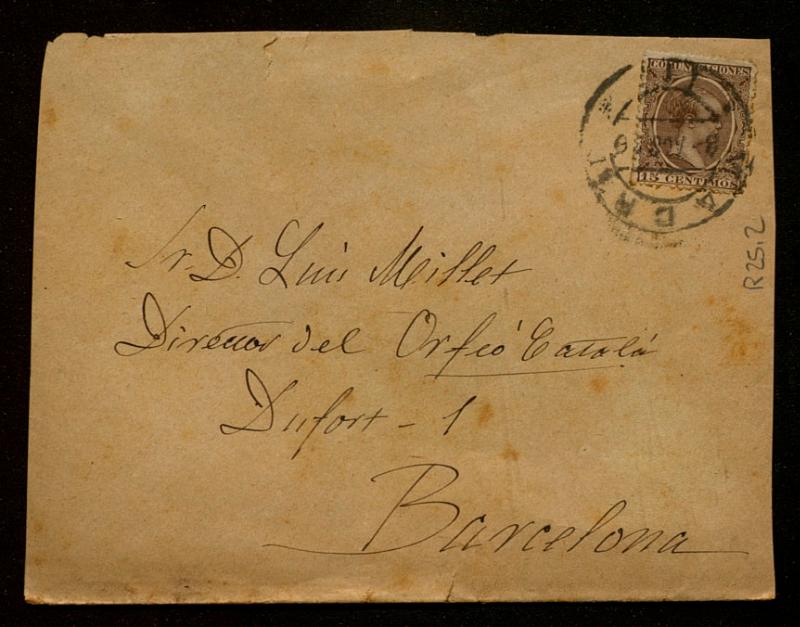 COMUNICACIONES
15 CENTIMOS
MADRID
Sr. D. Luis Millet
Director del Orfeó Català
Dufort - 1
Barcelona
R 25,2